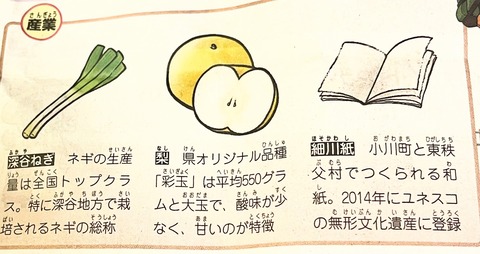 産業
深谷ねぎ ネギの生産
量は全国トップクラ
ス。特に深谷地方で栽
培されるネギの総称
梨 県オリジナル品種
「彩玉」は平均550グラ
ムと大玉で、酸味が少
なく、甘いのが特徴
細川紙 小川町と東秩
父村でつくられる和
紙。2014年にユネスコ
の無形文化遺産に登録